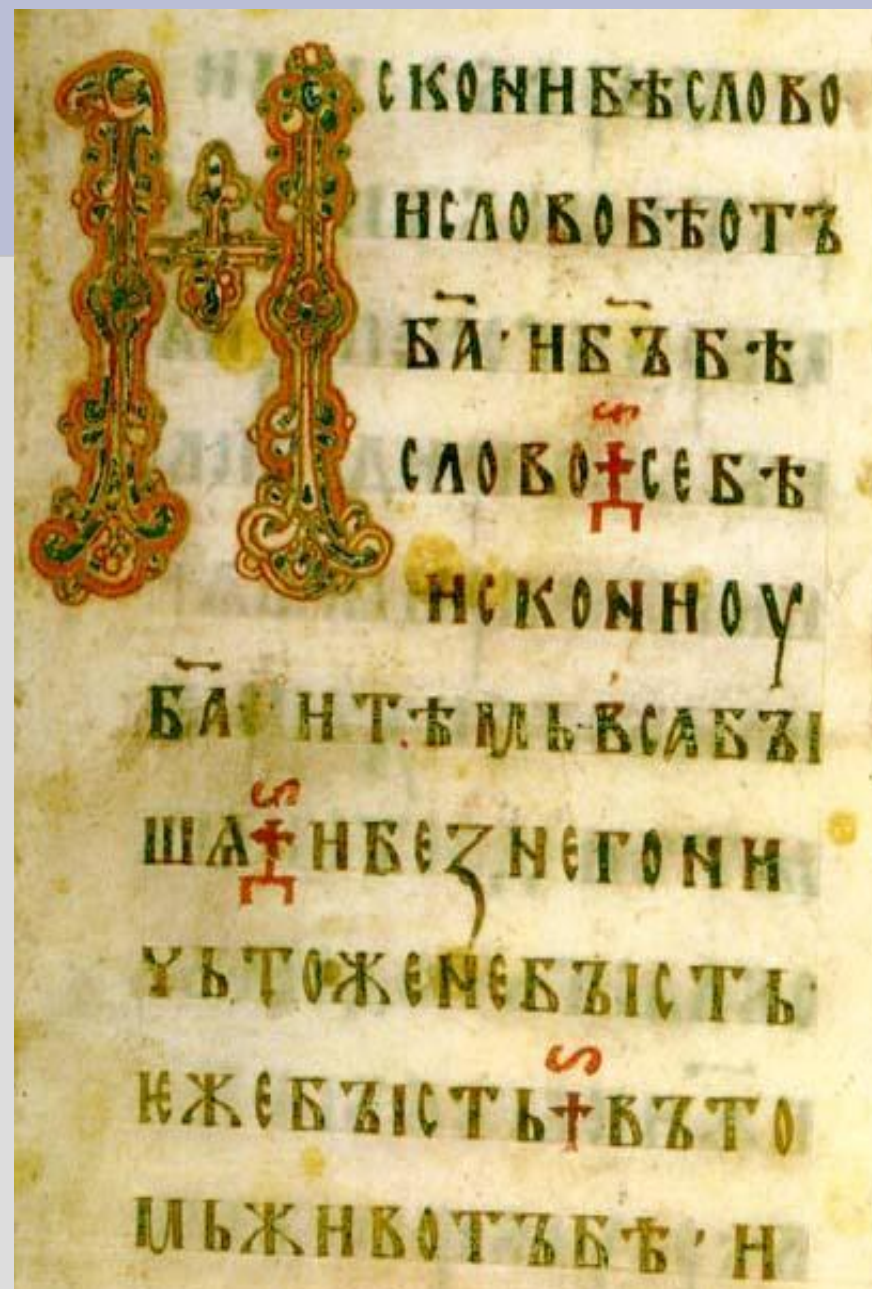 Искони бѣ слово
и слово бѣ отъ
б҃а · и б҃ъ бѣ
слово се бѣ
искони оу
б҃а и тѣмь вса бъі
шѧ и без него ни
чьтоже не бъість ·
ѥже бъість въ то
мь животъ бѣ · и